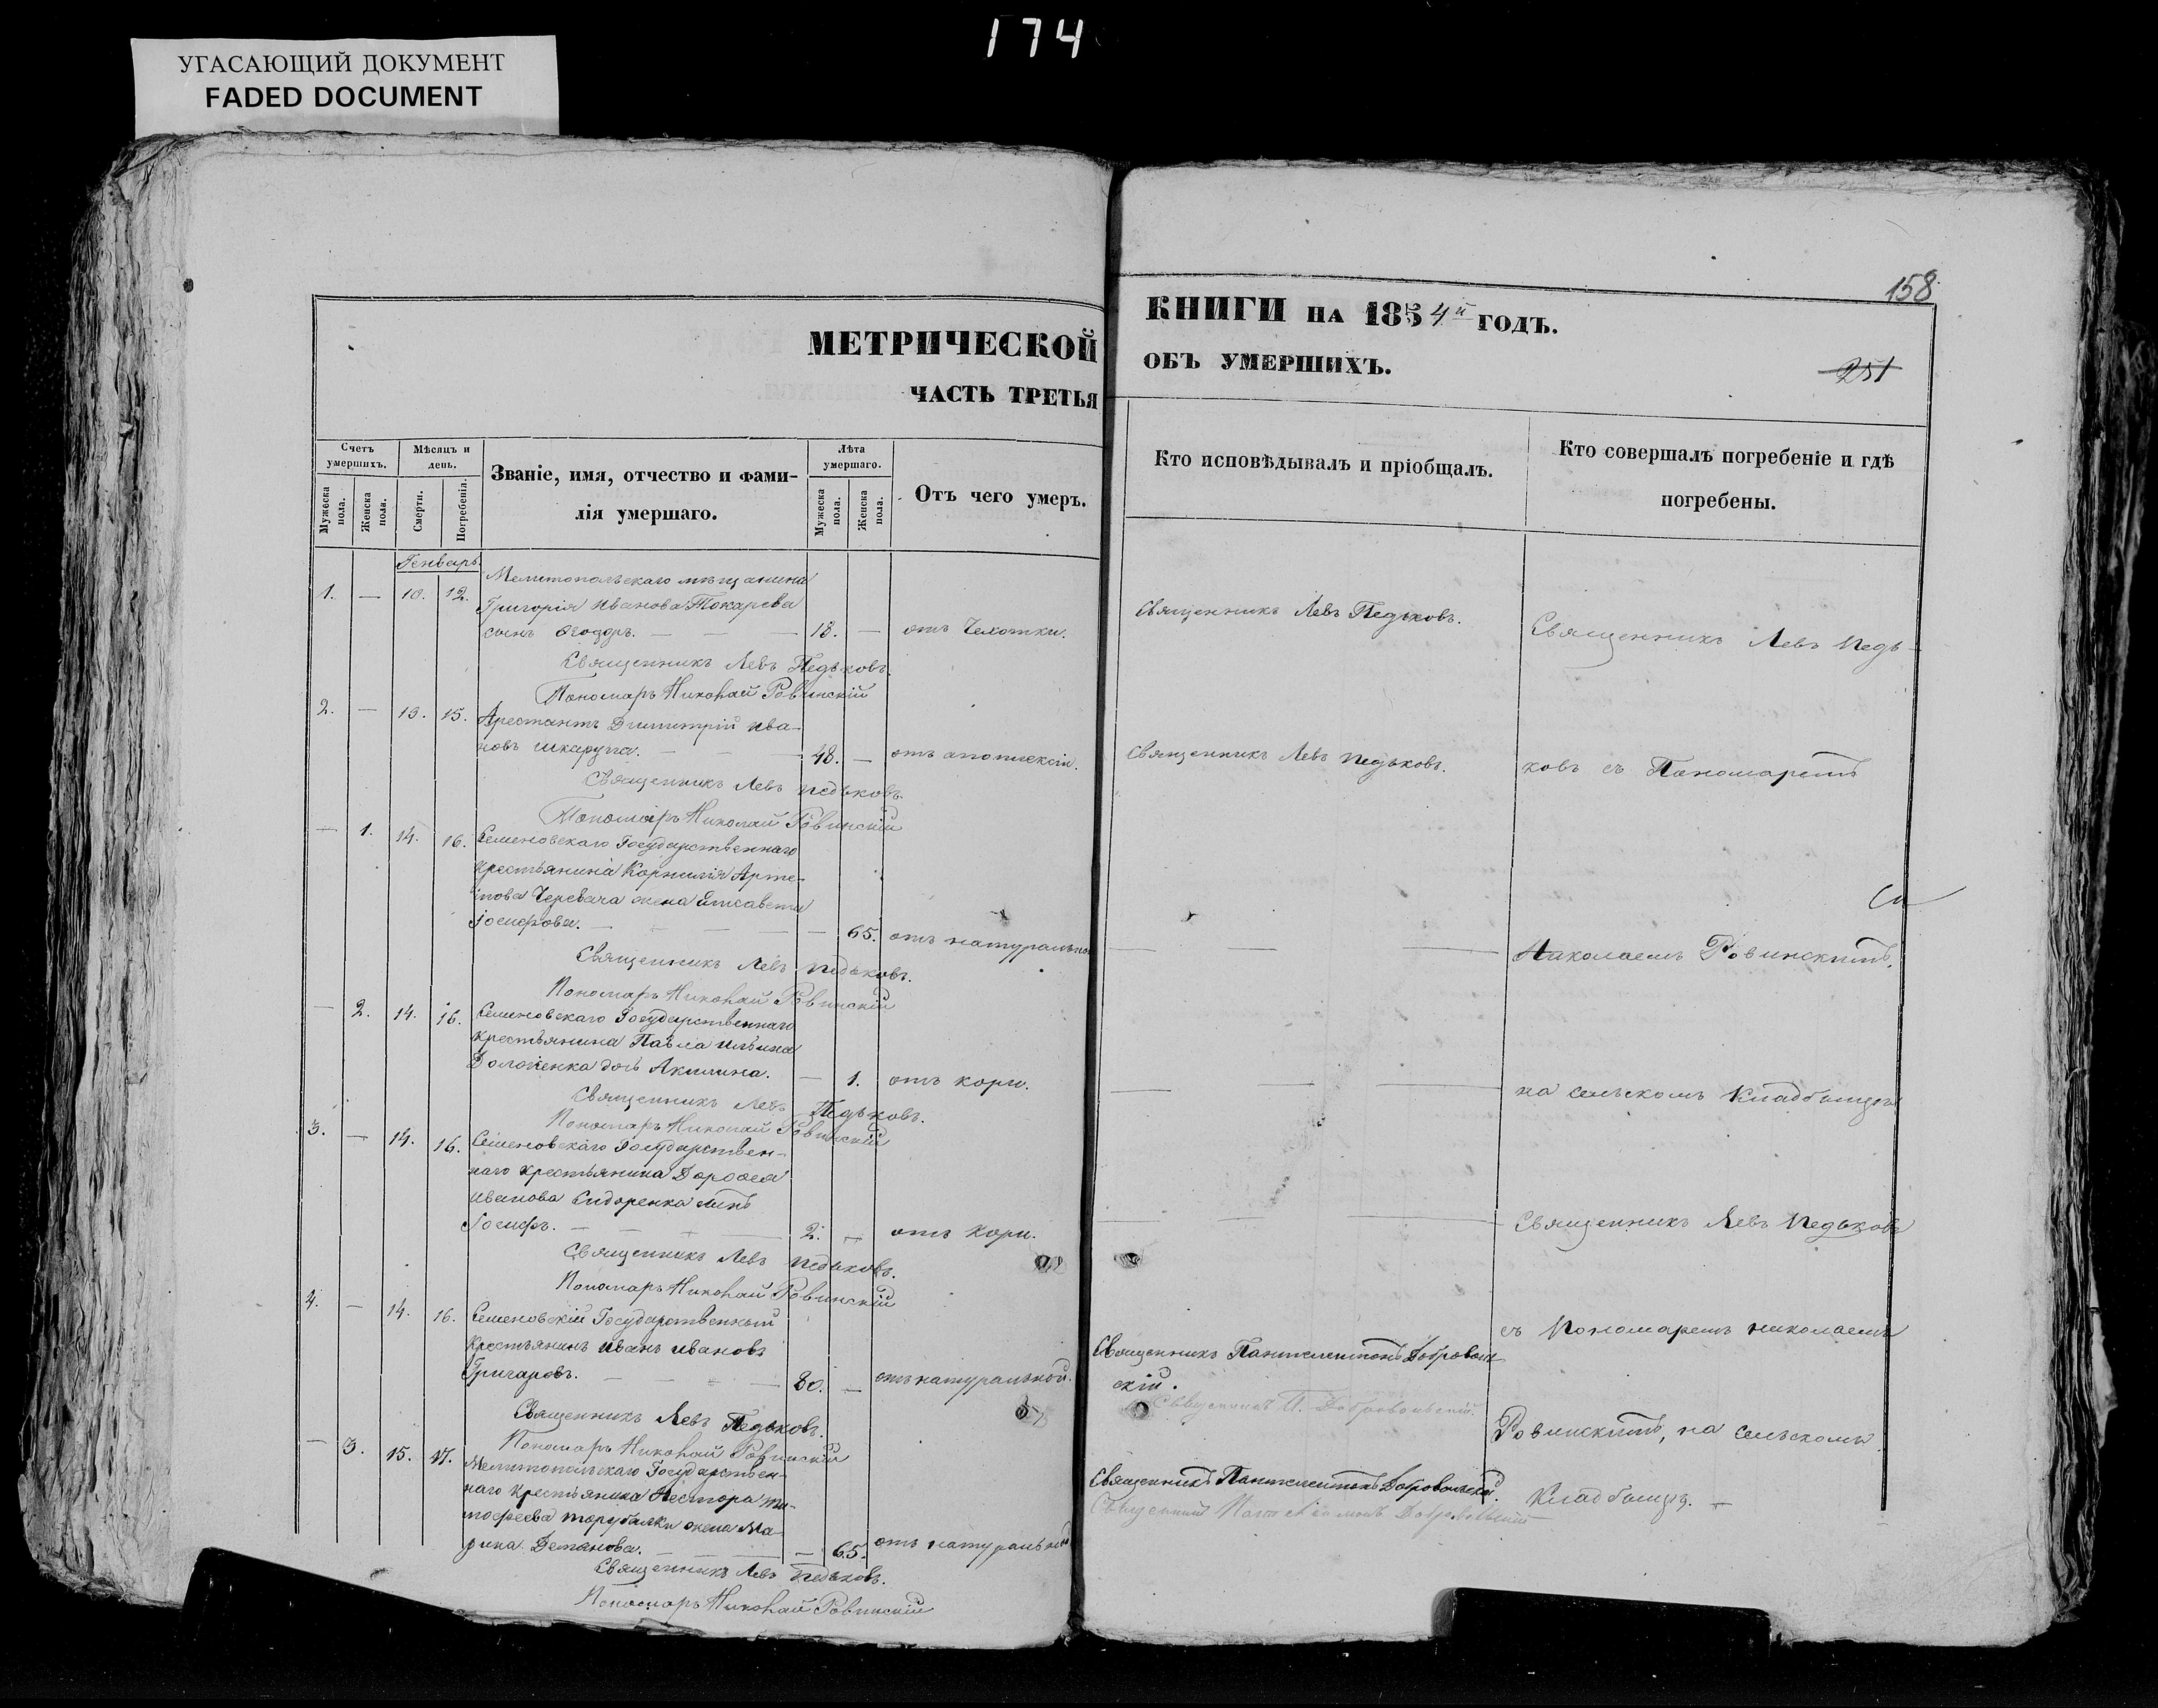 174
УГАСАЮЩИЙ ДОКУМЕНТ
FADED DOCUMENT
158
МЕТРИЧЕСКОЙ
ЧАСТЬ ТРЕТЬЯ
Счетъ умершихъ.
Мужеска пола.
Женска пола.
Мѣсяцъ и день.
Смерти.
Погребенія.
Званіе, имя, отчество и фами-
лія умершаго.
Лѣта умершаго.
Мужеска пола.
Женска пола.
Отъ чего умеръ.
Генварь.
1. — 10. 12. Мелитопольскаго мѣщанина
Григорія Иванова Токарева
сынъ Ѳеодоръ. — — — 18. — отъ Чехотки.
Священникъ Левъ Педьковъ.
Пономаръ Николай Ровинскій
2. — 13. 15. Арестантъ Димитрій Ива-
новъ Шкарупа. — — 48. — отъ апоплексіи.
Священникъ Левъ Педьковъ.
Пономаръ Николай Ровинскій
— 1. 14. 16. Семеновскаго Государственнаго
крестьянина Корнилія Арте-
мова Черевача жена Елисавета
Іосифова. — — — — — 65. отъ натуральной
Священникъ Левъ Педьковъ.
Пономаръ Николай Ровинскій
— 2. 14. 16. Семеновскаго Государственнаго
крестьянина Павла Ильина
дочь Акилина. — 1. отъ кори.
Священникъ Левъ Педьковъ.
Пономаръ Николай Ровинскій
3. — 14. 16. Семеновскаго Государствен-
наго крестьянина Дороѳея
Иванова Сидоренка сынъ
Іосифъ. — — — 2. — отъ кори.
Священникъ Левъ Педьковъ.
Пономаръ Николай Ровинскій
4. — 14. 16. Семеновскій Государственный
крестьянинъ Иванъ Ивановъ
— — — — 80. — отъ натуральной.
Священникъ Левъ Педьковъ.
Пономаръ Николай Ровинскій
— 3. 15. 17. Мелитопольскаго Государствен-
наго крестьянина Нестора Ти-
моѳеева жена Ма-
рина Демянова. — — — — 65. отъ натуральной
Священникъ Левъ Педьковъ.
Пономаръ Николай Ровинскій
КНИГИ НА 1854й ГОДЪ.
ОБЪ УМЕРШИХЪ.
251
Кто исповѣдывалъ и пріобщалъ.
Кто совершалъ погребеніе и гдѣ
погребены.
Священникъ Левъ Педьковъ.
Священникъ Левъ Педь-
Священникъ Левъ Педьковъ.
ковъ съ Пономаремъ
— — — Николаемъ Ровинскимъ,
— — — на сельскомъ кладбищѣ
— — Священникъ Левъ Педьковъ
съ Пономаремъ Николаемъ
Священникъ Пантелеимонъ Доброволь-
скій.
Священникъ П. Добровольскій.
Ровинскимъ, на сельскомъ
Священникъ Пантелеимонъ Добровольскій.
кладбищѣ. —
Священникъ Пантелеимонъ Добровольскій